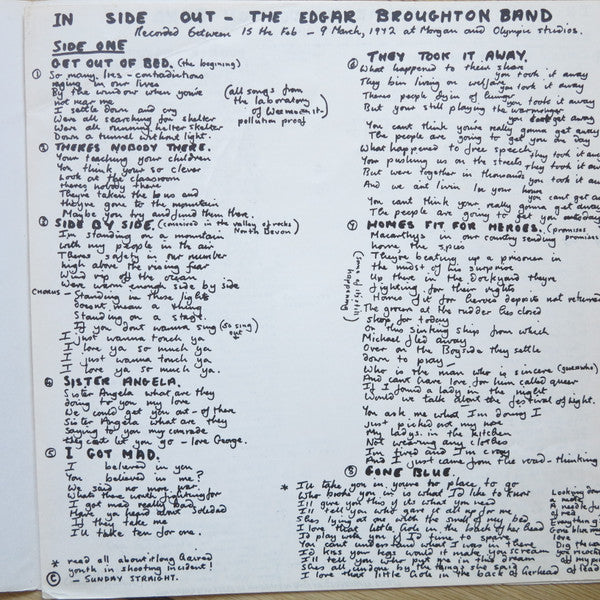 IN SIDE OUT - THE EDGAR BROUGHTON BAND
Recorded between 15 the Feb - 9 March, 1972 at Morgan and Olympic studios.
SIDE ONE
① GET OUT OF BED. (the begining)
So many lies - contradictions
in our lives
By the window when you're
not near me
I settle down and cry
Were all searching for shelter
Were all running helter skelter
Down a tunnel without light.
(all songs from
the laboratory
of
pollution proof
THERES NOBODY THERE.
Your teaching your children
You think your so clever
Look at the classroom
theres nobody there
Theyre taken the bus and
theyre gone to the mountain
Maybe you try and find them there.
SIDE BY SIDE. (convined in the valley of rocks North Devon)
I'm standing on a mountain
with my people in the air
Theres safety in our number
high above the rising fear
Wind rip off the ocean
Were warm enough side by side
CHORUS - Standing in these lights
doesnt mean a thing
Standing on a stage.
If you dont wanna sing (so sing out)
I just wanna touch ya
I love ya so much ya
I just wanna touch ya
I love ya so much ya.
④ SISTER ANGELA.
Sister Angela what are they
doing to you my love
We could get you out - of there
Sister Angela what are they
saying to you my comrade
they got to let you go - love George.
⑤ I GOT MAD.
I believed in you
You believed in me?
We said no more war.
Whats there worth fighting for
I got mad really bad
Have you heard about Soledad
If they take me
I'll take ten for one.
* read all about long haired
youth in shooting incident!
© - SUNDAY STRAIGHT.
⑥ THEY TOOK IT AWAY.
What happened to their share
you took it away
They bin living on welfare
you took it away
Theres people dyin of hunger
you took it away
But your still playing the warmonger
You cant think youre really gonna get away
The people are going to get you one day
What happened to free speech
They took it away
Your pushing us on the streets
They took it away
But were together in thousands
you took it away
And we aint livin in your house
you cant get away
You cant think your really gonna get away
The people are going to get you
⑦ HOMES FIT FOR HEROES. (promises promises
Macarthys in our country sending
home the spies
Theyre beating up a prisoner in
the midst of his surprise
Up there in the dockyard theyre
fighting for their rights
Homes fit for heroes deposits not returned
The groom at the rudder has closed
shop for today
On this sinking ship from which
Michael fled away
Over on the Bogside they settle
down to pray
Who is the man who is sincere
And cant have love for him called queer
If I found a lady in the night
Would we talk about the festival of light.
You ask me what I'm doing I
just picked out my nose
My ladys in the kitchen
Not wearing any clothes
I'm tired and I'm crazy
And I just came from the road - thinking
⑧ GONE BLUE.
* I'll take you in youre to place, to go
Who books you in is what Id like to know
I'll give you this if its what you need
I'll tell you who gave it all up for me
Shes lying at one with the smell of my bed
I love that little hole in the back of her head
Id play with you if Id time to spare
You cant understand what I was in there
Id kiss your legs would it make you scream
I'll tell you who put me in this dream
Shes all undone by the things she said
I love that little hole in the back of her head
Looking down
a needle
A needle full
Everything's
Gone blue my
love